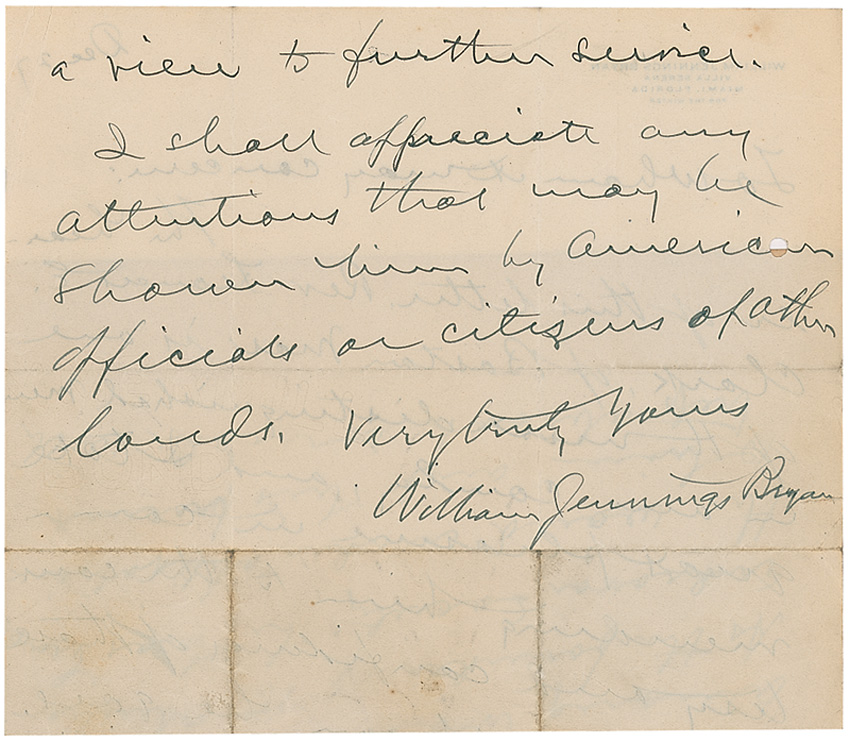 a view to further service.
I shall appreciate any
attentions that may be
shown him by American
officials or citizens of other
lands. Very truly yours
William Jennings Bryan